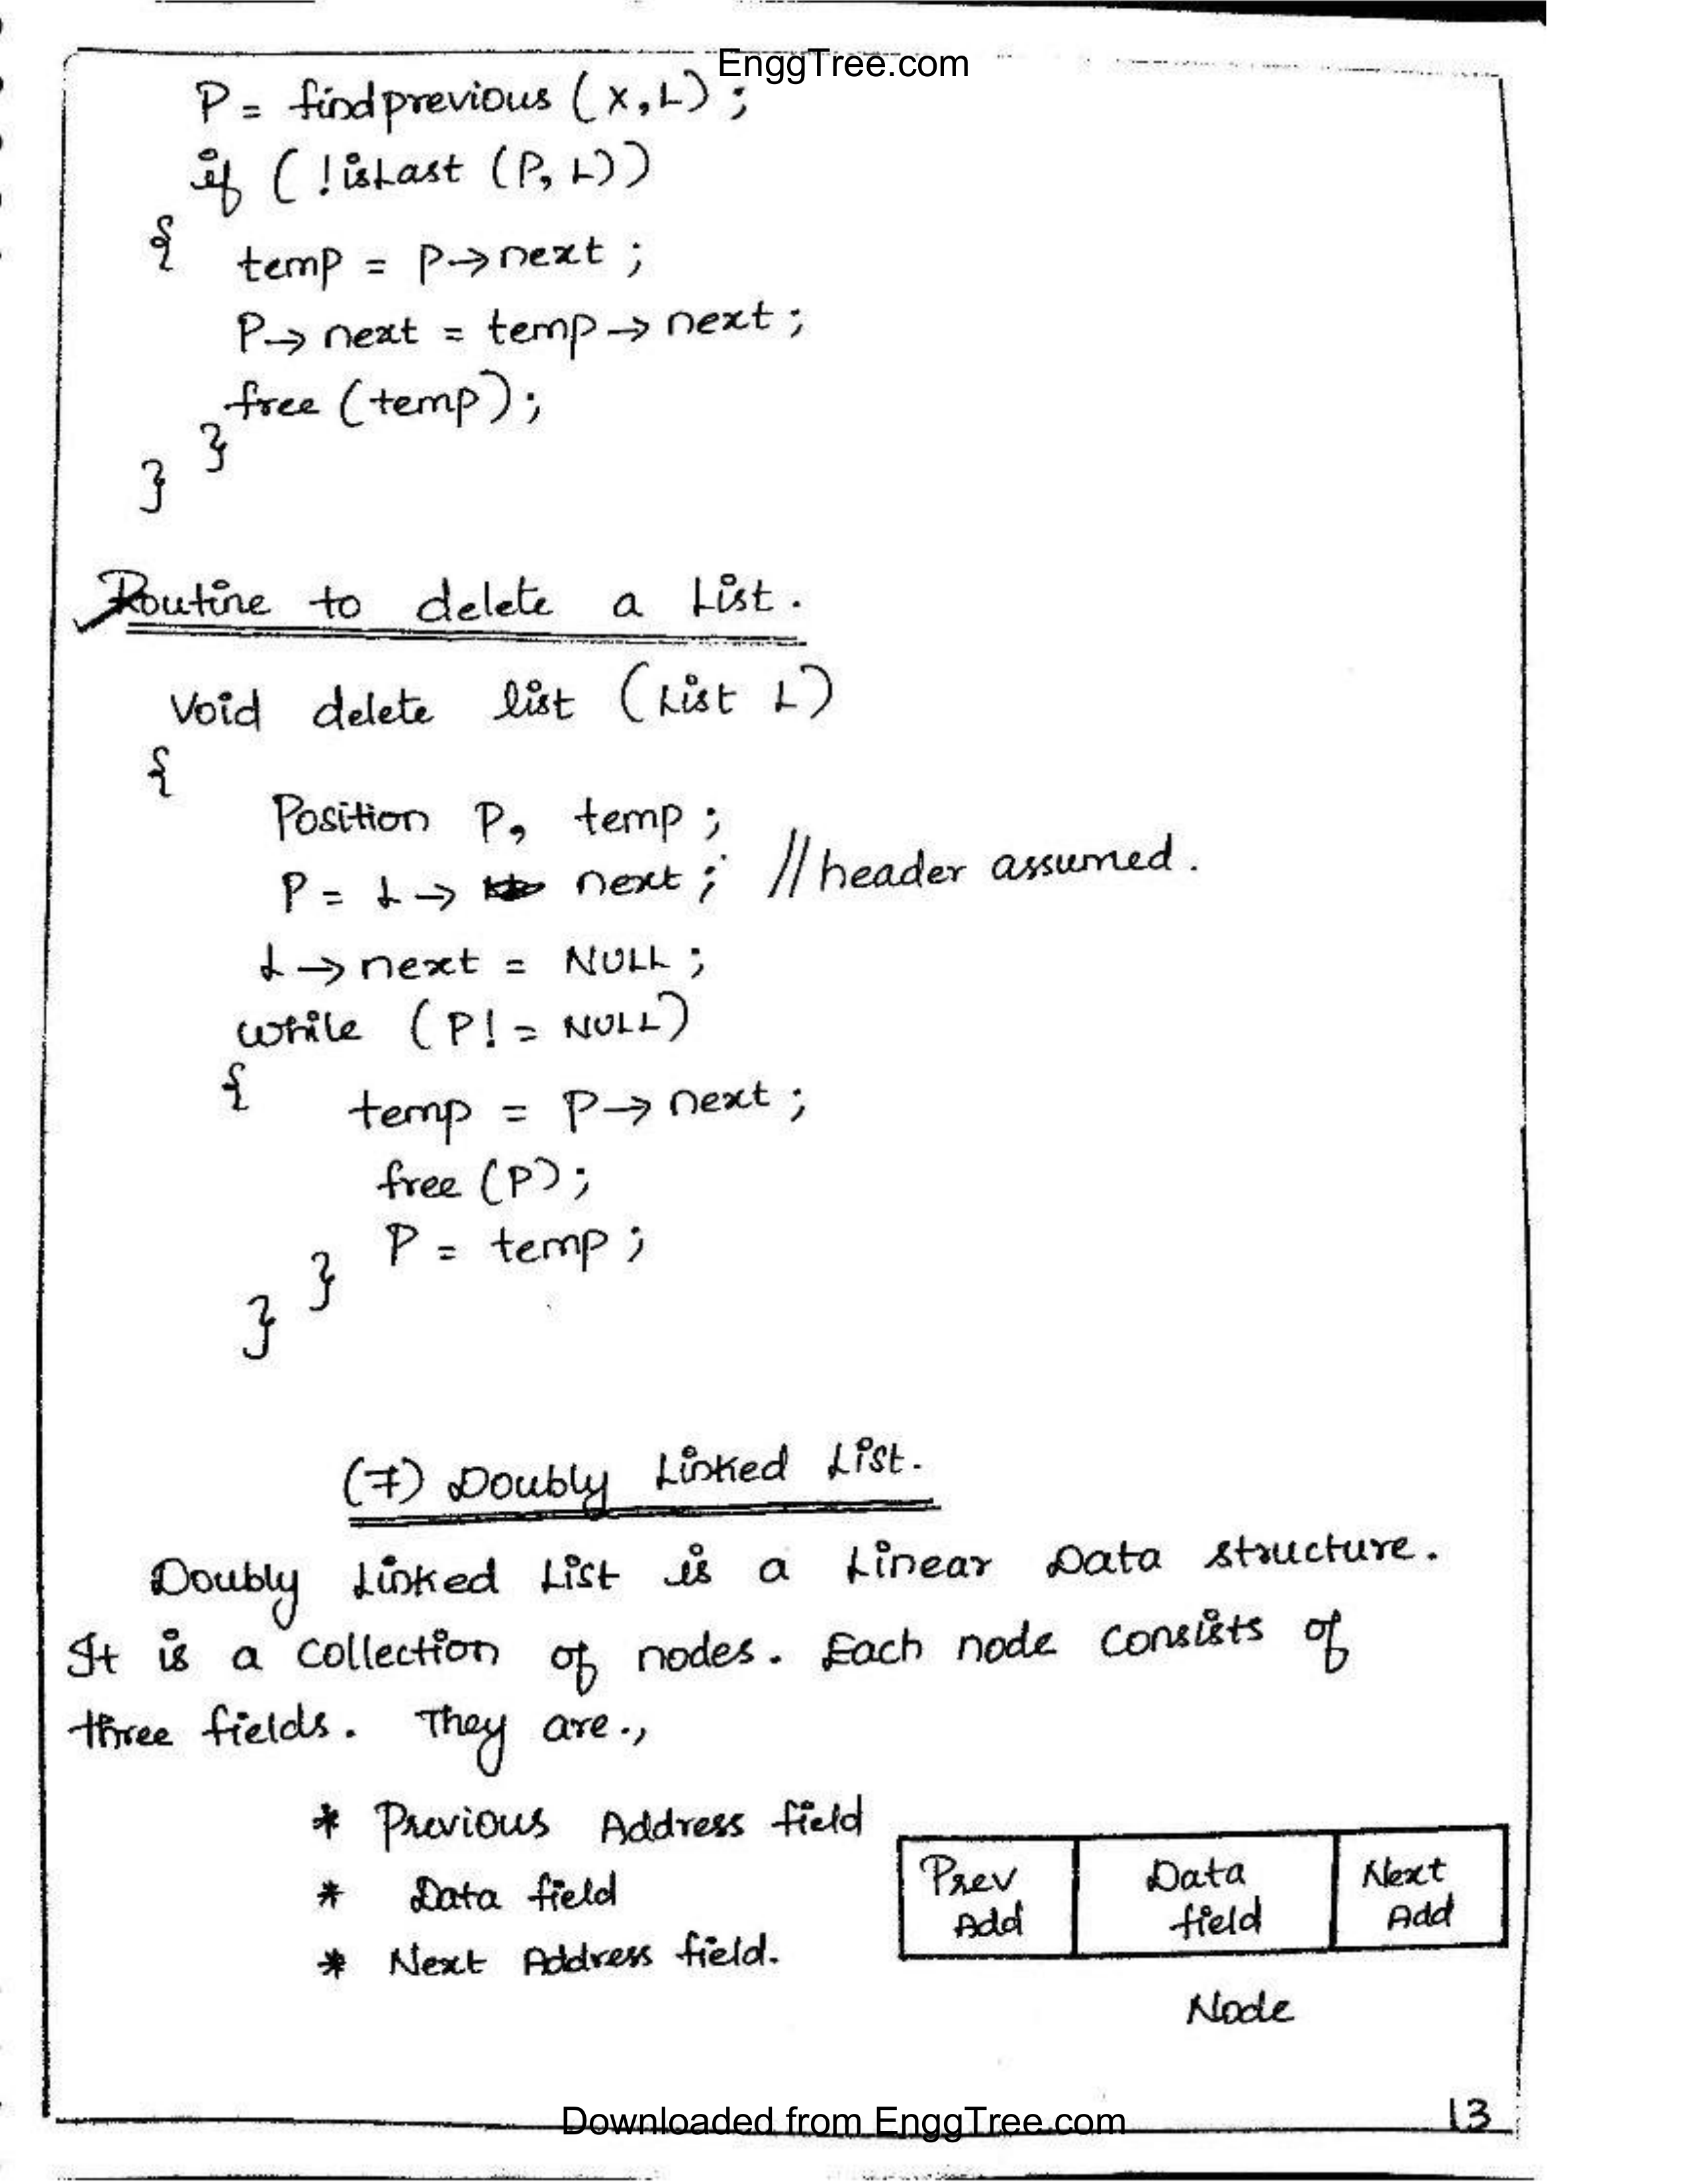 EnggTree.com
P = findprevious (X, L) ;
if ( ! isLast (P, L))
{ temp = P→next ;
P→ next = temp → next ;
free (temp) ;
}
}
Routine to delete a List.
Void delete list (List L)
{
Position P, temp ;
P = L → next ; // header assumed.
L → next = NULL ;
while (P! = NULL)
{ temp = P→ next ;
free (P) ;
P = temp ;
}
}
(7) Doubly Linked List.
Doubly Linked List is a Linear Data structure.
It is a collection of nodes. Each node consists of
three fields. They are.,
* Previous Address field
* Data field
* Next Address field.
Prev Add
Data field
Next Add
Node
13
Downloaded from EnggTree.com